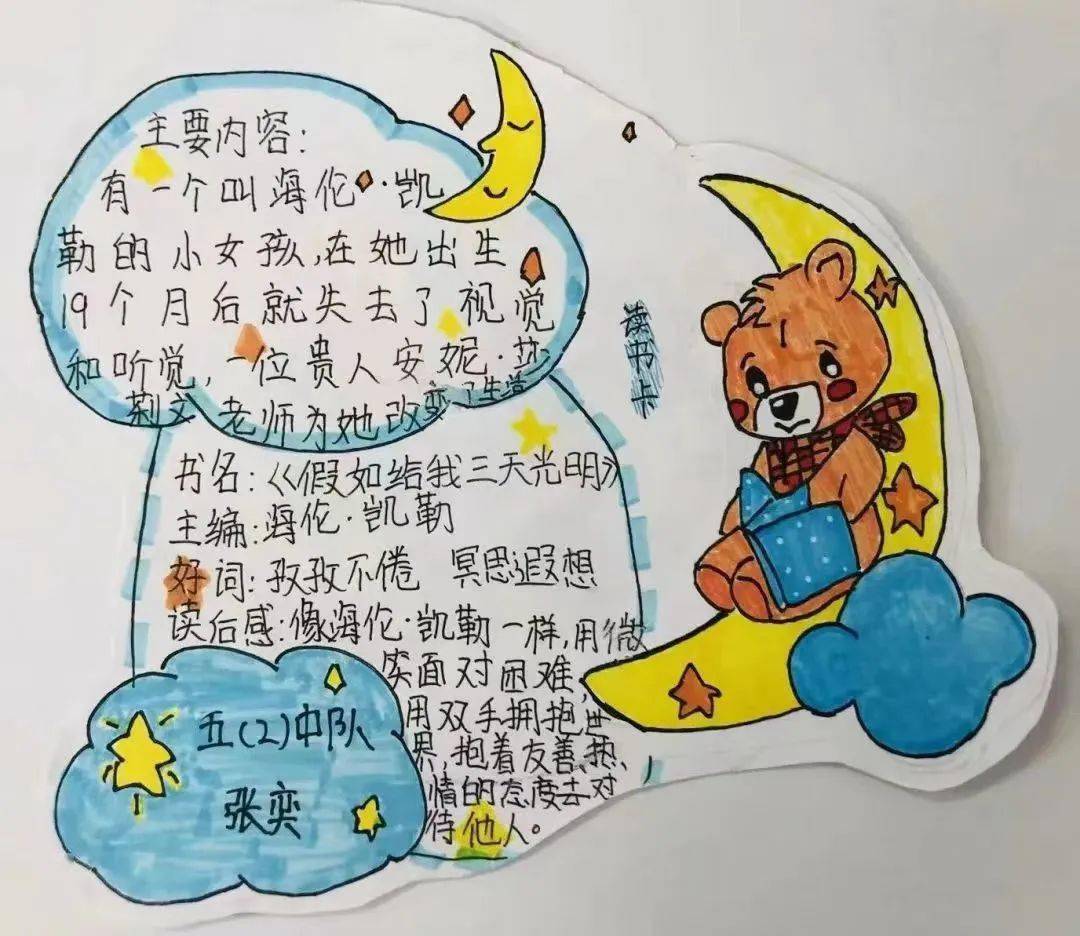 主要内容:
有一个叫海伦·凯
勒的小女孩,在她出生
19个月后就失去了视觉
和听觉,一位贵人安妮·莎
莉文老师为她改变了生活
读书卡
书名:《假如给我三天光明》
主编:海伦·凯勒
好词:孜孜不倦 冥思遐想
读后感:像海伦·凯勒一样,用微
笑面对困难,
用双手拥抱世
界,抱着友善、热
情的态度去对
待他人。
五(2)中队
张奕